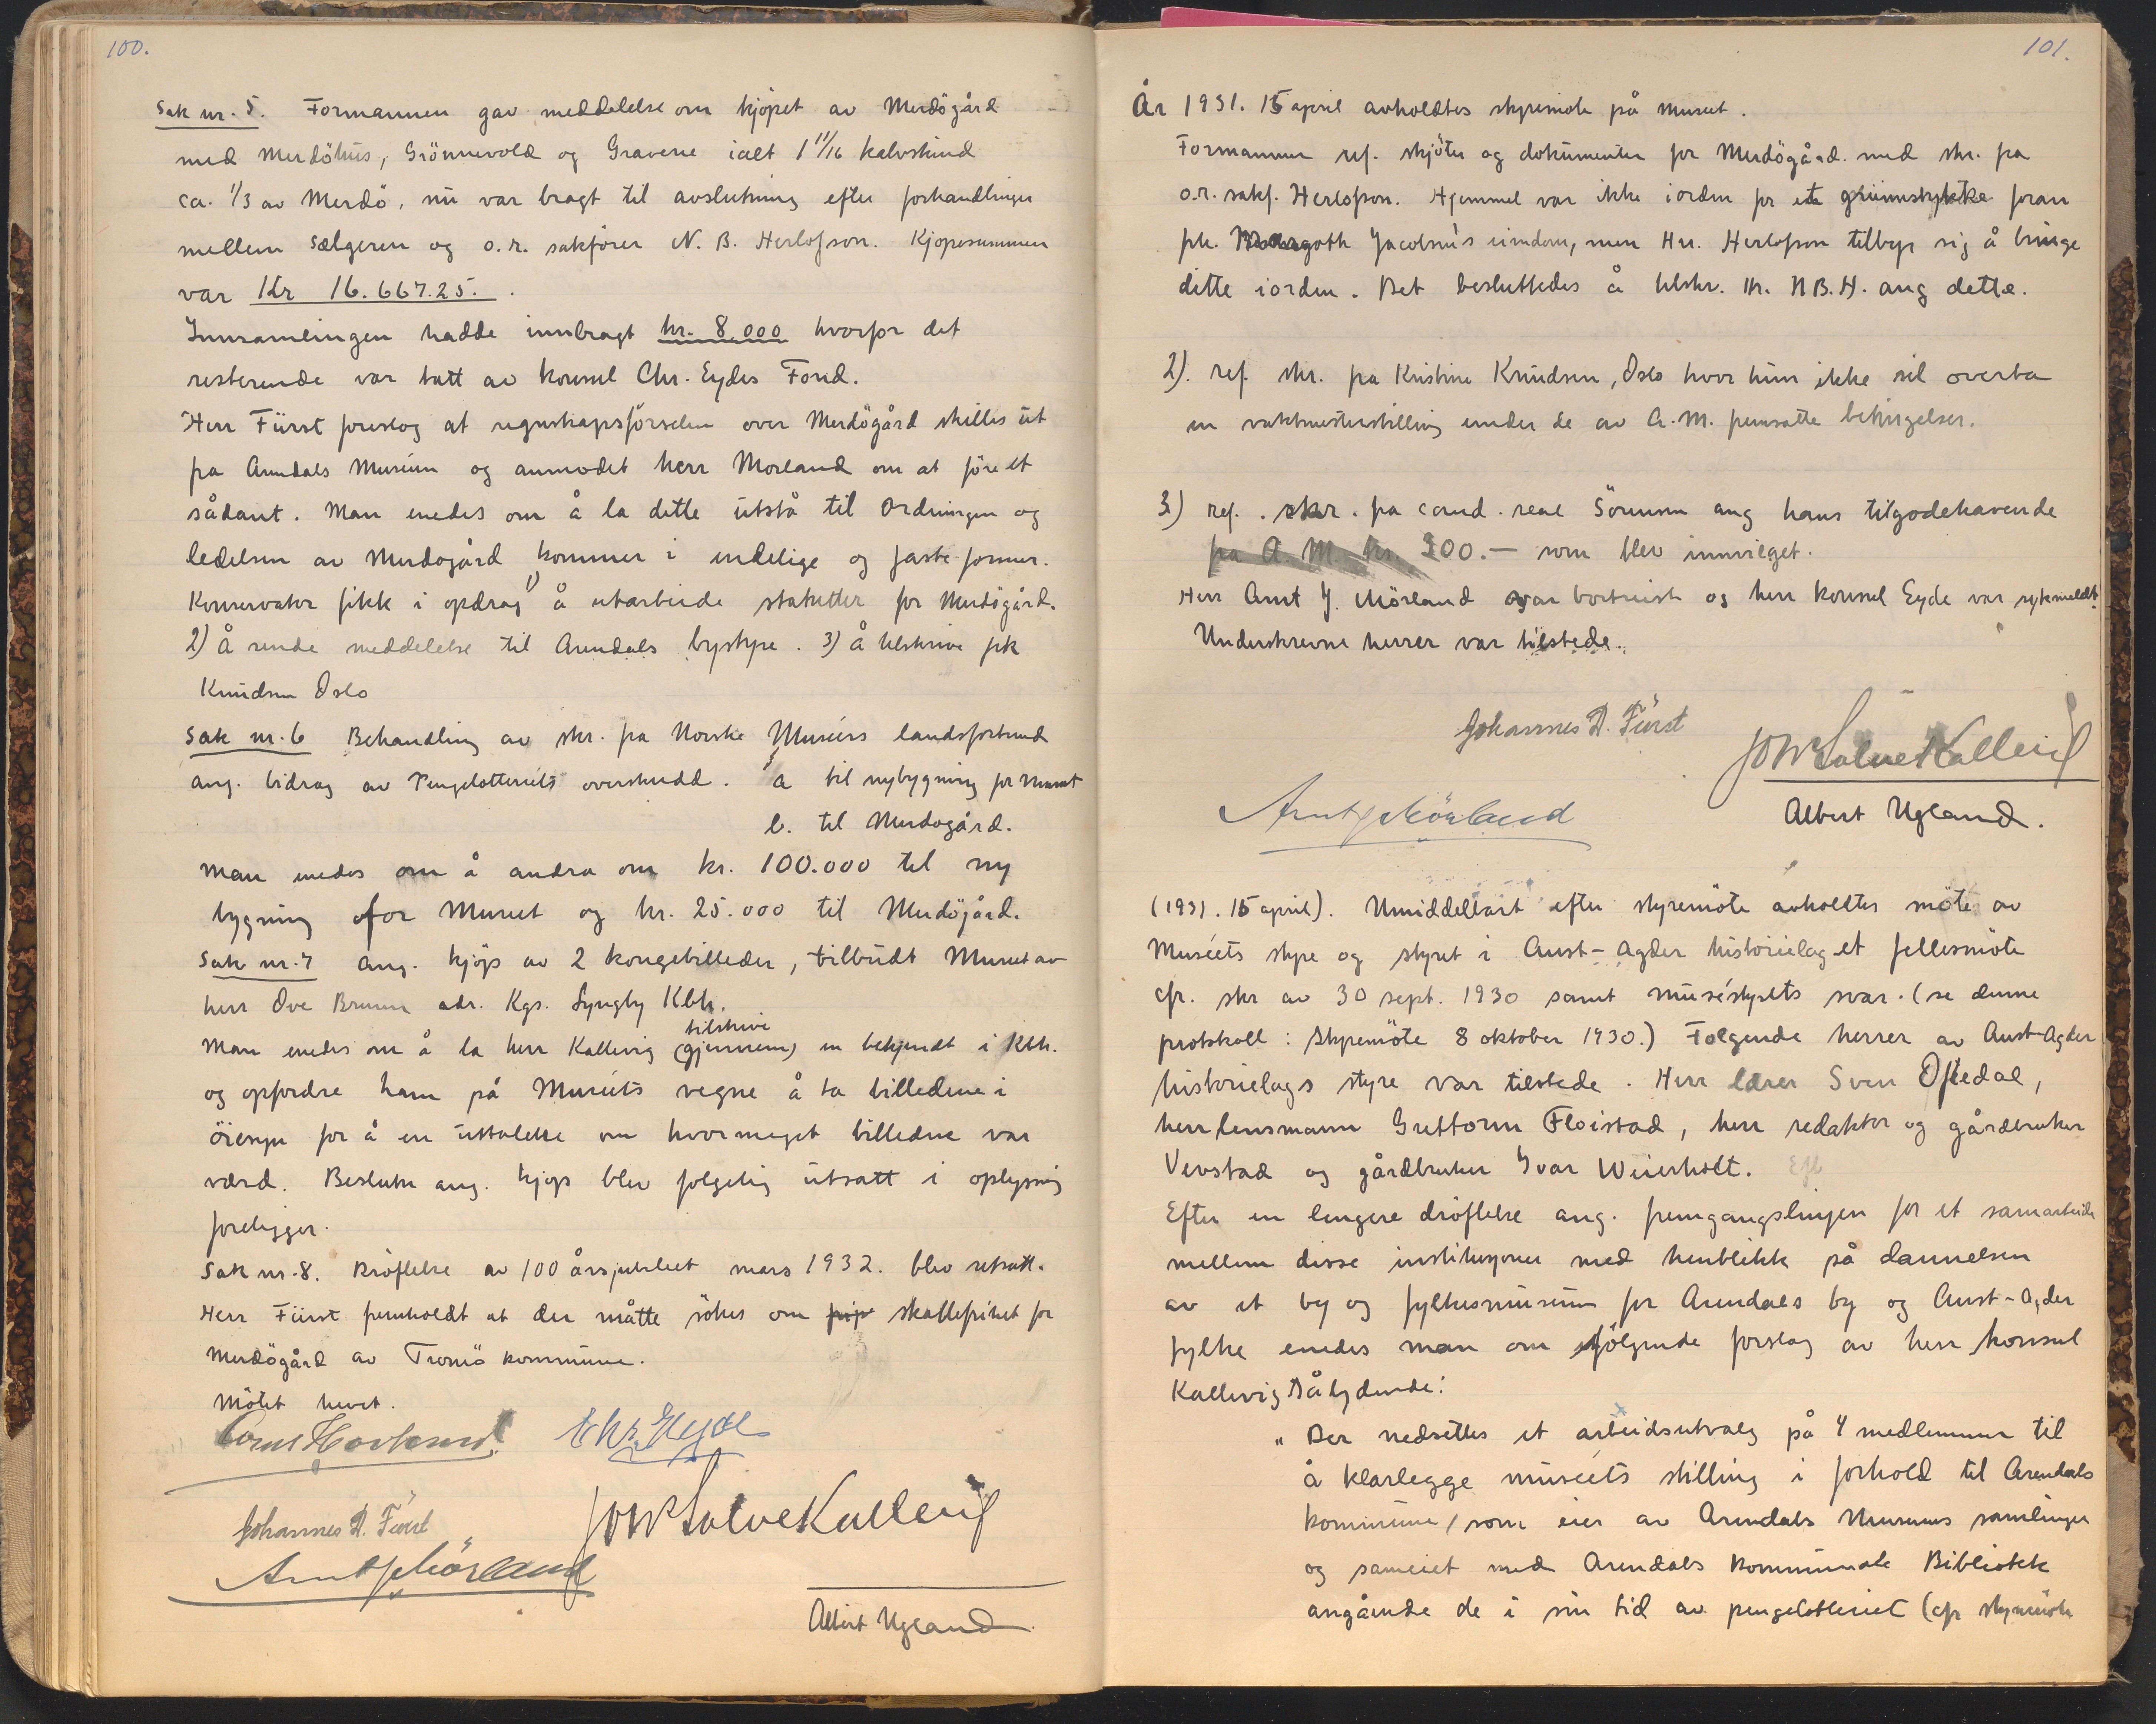 100.
Sak nr. 5. Formannen gav meddelelse om kjöpet av Merdögård
med Merdöhus, Grönnevold og Gravene ialt 1 11/16 kalvskind
ca. 1/3 av Merdö, nu var bragt til avslutning efter forhandlinger
mellem sælgeren og o.r. sakförer N. B. Herlofson. Kjöpesummen
var Kr 16.667.25.
Innsamlingen hadde innbragt kr. 8.000 hvorfor det
resterende var tatt av konsul Chr. Eydes Fond.
Herr Fürst foreslog at regnskapsförselen over Merdögård skilles ut
fra Arendals Museum og anmodet herr Morland om at före et
sådant. Man enedes om å la dette utstå til ordningen og
ledelsen av Merdogård kommer i endelige og faste former.
Konservator fikk i opdrag 1) å utarbeide statutter for Merdögård.
2) Å sende meddelelse til Arendals bystyre. 3) å tilskrive frk
Knudsen Oslo
Sak nr. 6 Behandling av skr. fra Norske Museers landsforbund
ang. bidrag av Pengelotteriets overskudd. a til nybygning for Museet
b. til Merdogård.
Man enedes om å andra om kr. 100.000 til ny
bygning for Museet og kr. 25.000 til Merdögård.
Sak nr. 7 ang. kjöp av 2 kongebilleder, tilbudt Museet av
herr Ove Bruun adr. Kgs. Lyngby Kbh.
tilskrive
Man enedes om å la herr Kallevig (gjennem) en bekjendt i Kbh.
og opfordre ham på Museets vegne å ta billedene i
öiesyn for å en uttalelse om hvormeget billedene var
værd. Beslutn ang. kjöp blev folgelig utsatt i oplysning
foreligger.
Sak nr. 8. Dröftelse av 100 årsjubileet mars 1932. blev utsatt.
Herr Fürst fremholdt at der måtte sökes om skattefrihet for
Merdögård av Tromö kommune.
Mötet hevet.
Chr. Eyde
Johannes D. Fürst
Johs Salve Kallevig
Arnt J Mörland
Albert Ugland
101.
År 1931. 15 april avholdtes styremöte på museet.
Formannen ref. skjöter og dokumenter for Merdögård med skr. fra
o.r. sakf. Herlofson. Hjemmel var ikke iorden for et grunnstykke foran
frk. Jacobsens eiendom, men Hr. Herlofson tilbyr sig å bringe
dette iorden. Det besluttedes å tilskr. Hr. N B. H. ang dette.
2). ref. skr. fra Kristine Knudsen, Oslo hvor hun ikke vil overta
en vaktmesterstilling under de av A. M. fremsatte betingelser.
3) ref. skr. fra cand. real Sörensen ang hans tilgodehavende
fra A. M. kr 300.— som blev innvilget.
Herr Arnt J. Mörland var bortreist og herr konsul Eyde var sykemeldt.
Underskrevne herrer var tilstede.
Johannes D. Fürst
Johs Salve Kallevig
Arnt J Mörland
Albert Ugland.
(1931. 15 april). Umiddelbart efter styremöte avholdtes möte av
Museets styre og styret i Aust-Agder historielag et fellesmöte
cfr. skr av 30 sept. 1930 samt museéstyrets svar. (se denne
protokoll: styremöte 8 oktober 1930.) Folgende herrer av Aust-Agder
historielags styre var tilstede. Herr lærer Sven Oftedal,
herr lensmann Guttorm Floistad, herr redaktor og gårdbruker
Vevstad og gårdbruker Ivar Weierholt.
Efter en lengere dröftelse ang. fremgangslinjen for et samarbeide
mellem disse institusjoner med henblikk på dannelsen
av et by og fylkesmuseum for Arendals by og Aust-Agder
fylke enedes man om fölgende forslag av herr konsul
Kallevig sålydende:
"Der nedsettes et arbeidsutvalg på 4 medlemmer til
å klarlegge museets stilling i forhold til Arendals
kommune, som eier av Arendals Museums samlinger
og sameiet med Arendals Kommunale Bibliotek
angående de i sin tid av pengelotteriet (cfr styremöte